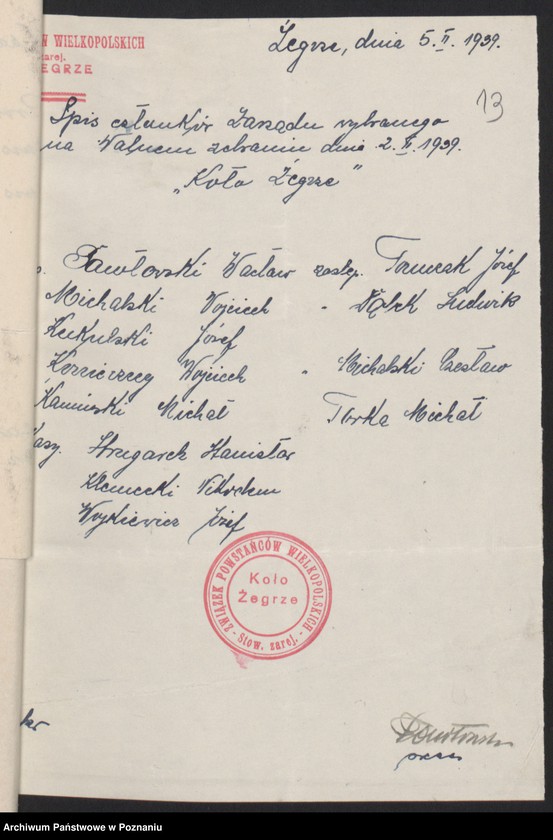 W WIELKOPOLSKICH
zarej.
ŻEGRZE
Żegrze, dnia 5. II. 1939.
13
Spis członków Zarządu wybranego
na Walnem zebraniu dnia 2. II. 1939.
"Koło Żegrze"
Pawłowski Wacław zastęp. Tomczak Józef
Michalski Wojciech " Ludwik
Kukulski Józef
Wojciech " Michalski Czesław
Kamiński Michał Torka Michał
Kasy. Stanisław
Klemecki
Wojkiewicz Józef
ZWIĄZEK POWSTAŃCÓW WIELKOPOLSKICH
Koło
Żegrze
- Stow. zarej. -
prezes
Archiwum Państwowe w Poznaniu